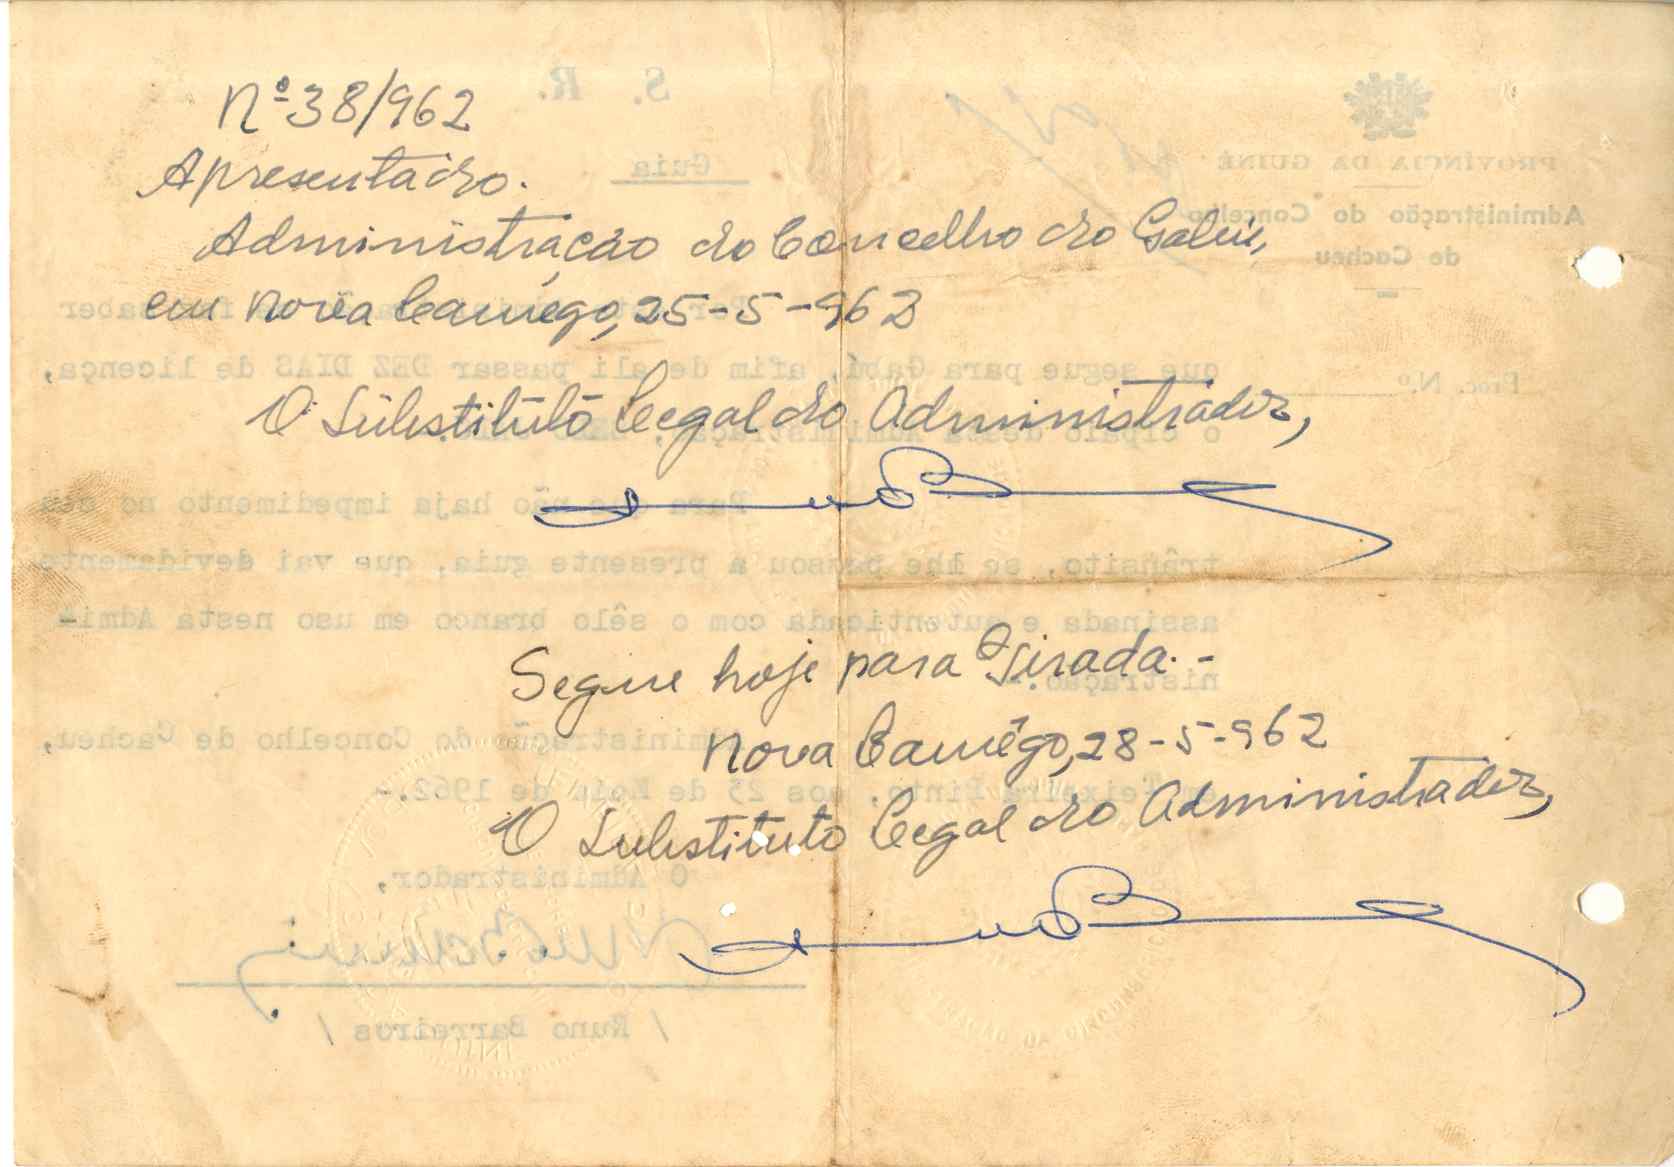 Nº 38/962
Apresentado.
Administração do Concelho do Gabú,
em Nova Lamêgo, 25-5-962
O Substituto Legal do Administrador,
Segue hoje para Pirada.-
Nova Lamêgo, 28-5-962
O Substituto Legal do Administrador,
S. R.
PROVÍNCIA DA GUINÉ
Administração do Concelho
de Cacheu
Guia
saber
Proc. N.º
que segue para Gabú, afim de ali passar DEZ DIAS de licença,
o cipaio desta Administração,
Para que não haja impedimento no seu
trânsito, se lhe passou a presente guia, que vai devidamente
assinada e autenticada com o sêlo branco em uso nesta Admi-
nistração.-
Administração do Concelho de Cacheu,
Teixeira Pinto, aos 23 de Maio de 1962.-
O Administrador,
/ Nuno Barreiros /